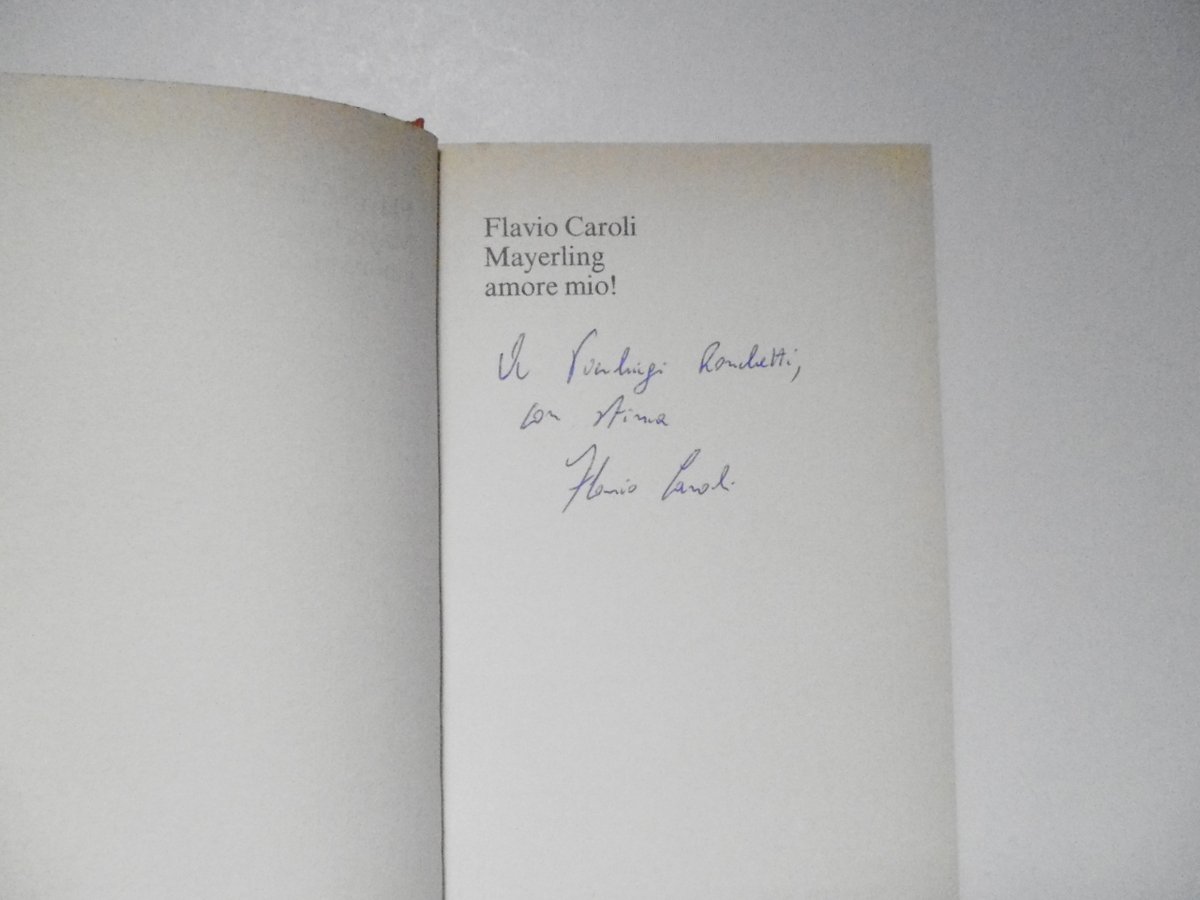 Flavio Caroli
Mayerling
amore mio!
A Pierluigi Ronchetti,
con stima
Flavio Caroli